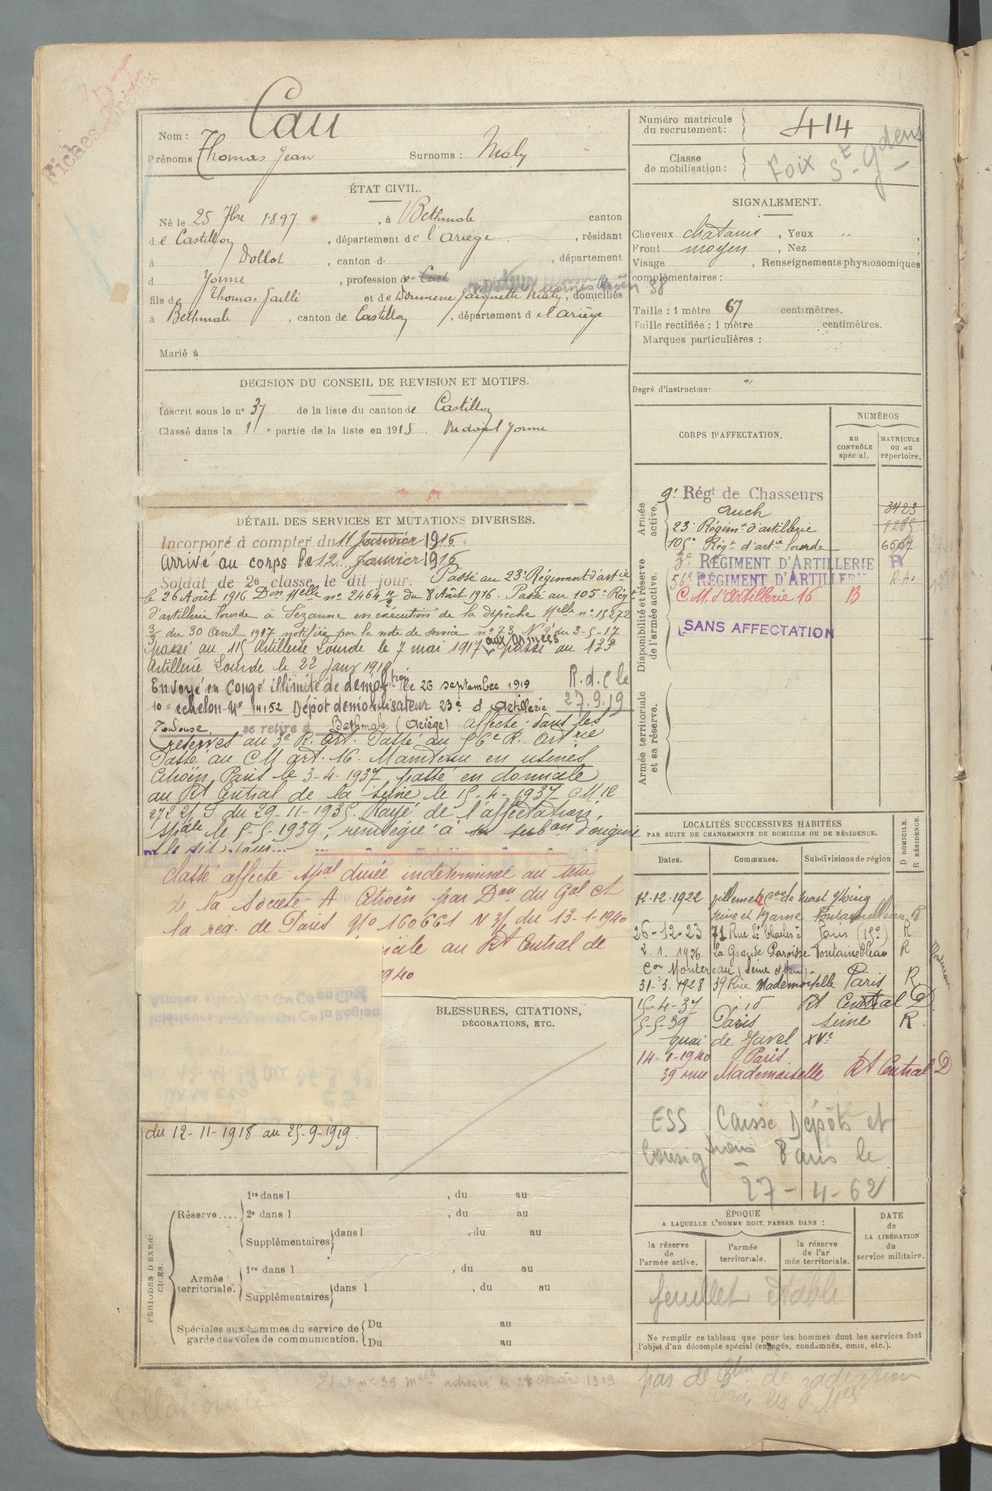 Cau
Nom :
Prénoms Thomas Jean Surnoms : Naly
ÉTAT CIVIL.
Né le 25 7bre 1897, à Bethmale canton
de Castillon, département de l'ariège, résidant
à Dollot, canton d, département
d Yonne, profession de
fils de Thomas et de, domiciliés
à Bethmale, canton de Castillon, département de l'ariège
Marié à
DECISION DU CONSEIL DE REVISION ET MOTIFS.
Inscrit sous le n° 37 de la liste du canton de Castillon
Classé dans la 1e partie de la liste en 1915. Yonne
DÉTAIL DES SERVICES ET MUTATIONS DIVERSES.
Incorporé à compter du 11 Janvier 1916.
Arrivé au corps le 12 Janvier 1916
Soldat de 2e classe le dit jour. Passé au 23e Régiment d'artie
le 26 Août 1916 Don Melle no 2464 du 8 Août 1916. Passé au 105e Régt
d'artillerie Lourde à Sézanne en exécution de la dépêche Melle n° 15272
3/3 du 30 Avril 1917 notifiée par la note de service n° 73 du 3-5-17
passé au 115 Artillerie Lourde le 7 mai 1917 aux armées passé au 133
Artillerie Lourde le 22 Janv 1919
Envoyé en Congé illimité de démobtion le 26 septembre 1919 R.d.c le
10e échelon N° 14152 Dépôt démobilisateur 23e d'Artillerie 27.9.19
Toulouse se retire à Bethmale (Ariège) affecté dans les
réserves au 3e R. Art. Passé au 56e R. Artrie
Passé au CM art. 16. Maintenu en usines
Citroën, Paris le 3-4-1937 passé en domicile
au Rt Central de la Seine le 15-4-1937 CM. 12
272 du 29-11-1935 Rayé de l'affectation
spale le 5-5-1939, réintégré à d'origine
le dit jour
Classé affecté spal durée indéterminée au titre
de la Société A Citroën par Don du Gal Ct
la rég. de Paris No 160661 N 3/ du 13-1-1940
au Rt Central de
940
du 12-11-1918 au 25-9-1919.
BLESSURES, CITATIONS,
DÉCORATIONS, ETC.
PÉRIODES D'EXERCICES.
Réserve .... 1re dans l , du au
2e dans l , du au
Supplémentaires dans l , du au
Armée territoriale. 1re dans l , du au
Supplémentaires dans l , du au
Spéciales aux hommes du service de garde des voies de communication. Du au
Du au
Numéro matricule du recrutement : 414
Classe de mobilisation : Foix St-Gdens
SIGNALEMENT.
Cheveux châtains, Yeux "
Front moyen, Nez
Visage , Renseignements physionomiques
complémentaires :
Taille : 1 mètre 67 centimètres.
Taille rectifiée : 1 mètre centimètres.
Marques particulières :
Degré d'instruction "
CORPS D'AFFECTATION.
NUMÉROS
AU CONTRÔLE spécial.
MATRICULE OU AU répertoire.
Armée active.
9e Régt de Chasseurs
Auch 3423
23e Régimt d'artillerie 7285
105e Régt d'artie Lourde 6507
Disponibilité et réserve de l'armée active.
3e RÉGIMENT D'ARTILLERIE R
56e RÉGIMENT D'ARTILLERIE R.A.
C.M. d'Artillerie 16 B
SANS AFFECTATION
Armée territoriale et sa réserve.
LOCALITÉS SUCCESSIVES HABITÉES
PAR SUITE DE CHANGEMENTS DE DOMICILE OU DE RÉSIDENCE.
Dates. Communes. Subdivisions de région D DOMICILE. R RÉSIDENCE.
12-12-1922
Seine et Marne Fontainebleau R
26-12-23 71 Rue St Charles à Paris (15e) R
2.1.1926 La Grande Paroisse Fontainebleau R
Con Montereau (Seine et M)
31-3-1928 39 Rue Mademoiselle Paris R
15-4-37 id Rt Central D
5-5-39 Paris Seine R.
quai de Javel XVe
14-1-1940 Paris
39 rue Mademoiselle Rt Central D
ESS Caisse Dépôts et
Consignations Paris le
27-4-62
ÉPOQUE
A LAQUELLE L'HOMME DOIT PASSER DANS :
la réserve de l'armée active.
l'armée territoriale.
la réserve de l'armée territoriale.
DATE de LA LIBÉRATION du service militaire.
feuillet
Ne remplir ce tableau que pour les hommes dont les services font
l'objet d'un décompte spécial (engagés, condamnés, omis, etc.).
pas de de radiation